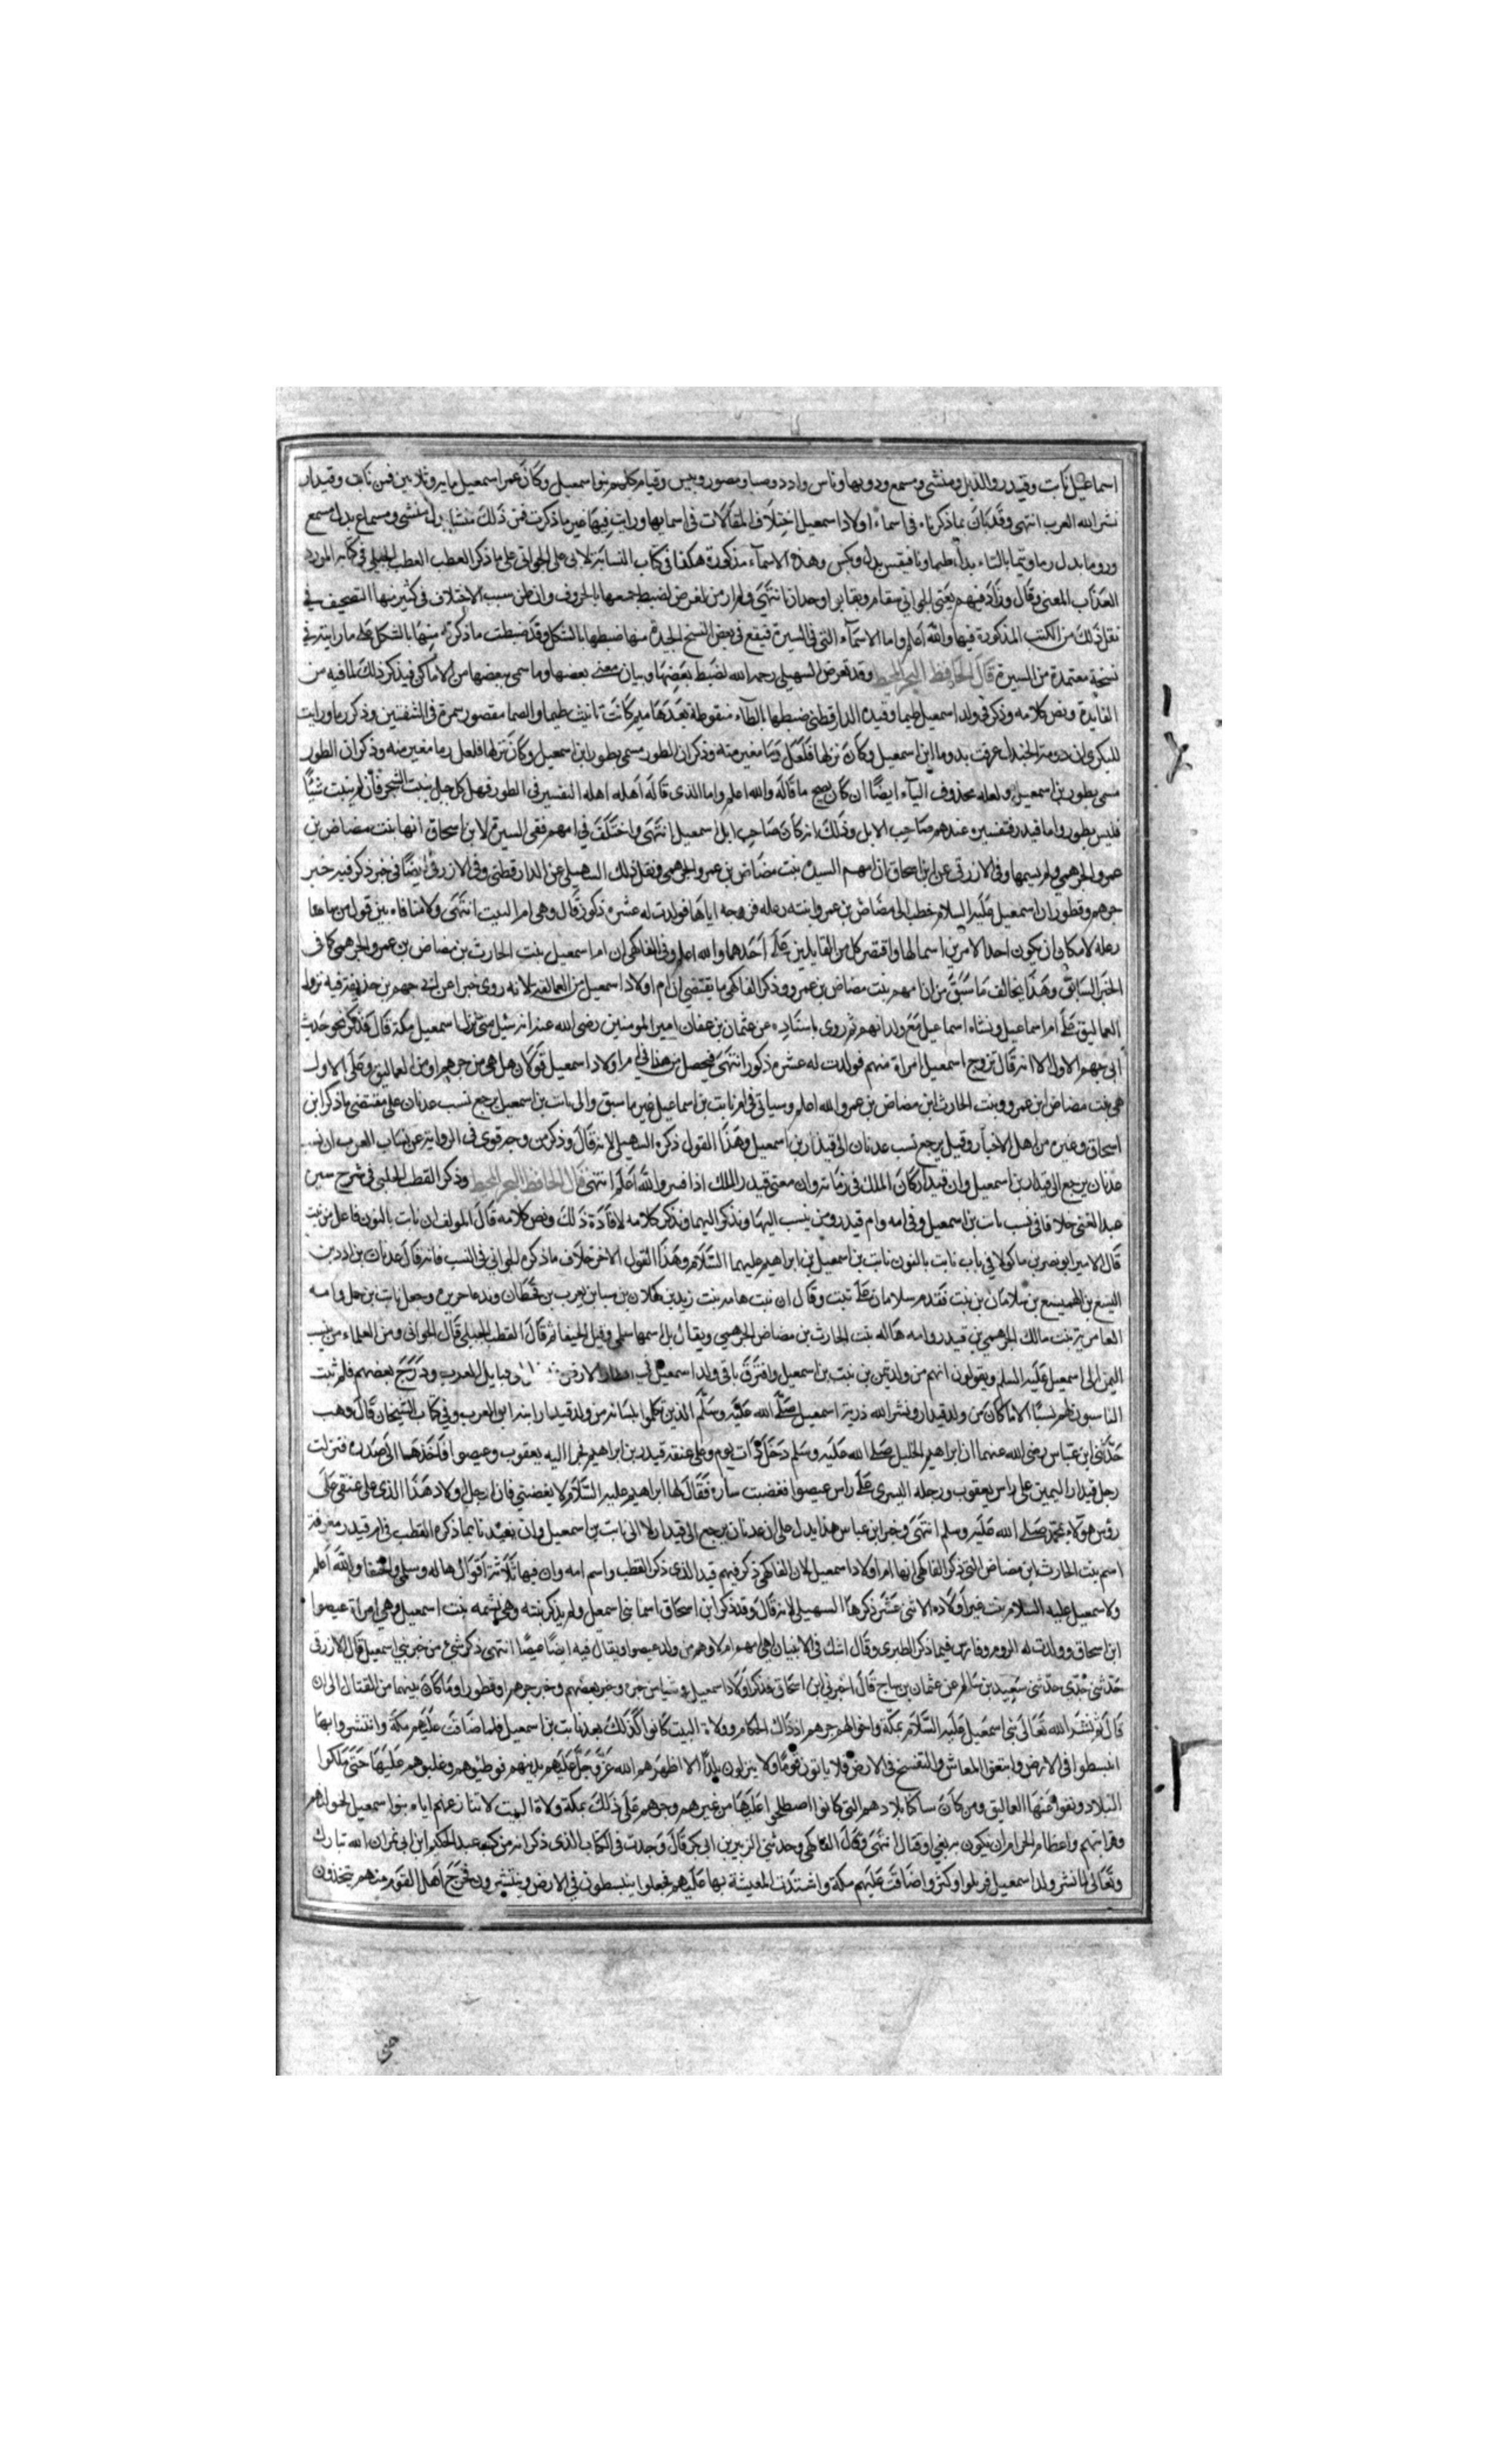 اسماعيل نابت وقيدر والذبل ومنشى ومسمع ودوبها وناس وادد وصبا ومصور وبيس وقيام كلهم بنوا سمعيل وكان عمر اسمعيل مايه وثلاثين فمن نابت وقيدار
نشر الله العرب انتهى وقد بان بما ذكرناه فى اسماء اولاد اسمعيل اختلاف المقالات فى اسمايها ورايت فيها غير ما ذكرت فمن ذلك منشا بدل منشى ومسماع بدل مسمع
وروما بدل رما وتيما بالتاء بدل طيما ونافيس بدل وكبس وهذه الاسماء مذكورة هكذا فى كتاب النسابة لابى على الجوانى على ما ذكر القطب الحلبى فى كتابه المورد
العذاب المعنى وقال وزاد فيهم يعنى الجوانى انتهى ولم ار من تعرض لضبط جميعها بالحروف واظن سبب الاختلاف فى كثير منها التصحيف فى
نقل ذلك من الكتب المذكورة فيها والله اعلم واما الاسماء التى فى السيرة فيقع فى بعض النسخ الجيدة منها ضبطها بالشكل وقد ضبطت ما ذكرته منها بالشكل على ما رايته فى
نسخة معتمدة من السيرة قال الحافظ وقد تعرض السهيلى رحمه الله لضبط بعضها وبيان معنى بعضها وما سمى ببعضها من الاماكن فنذكر ذلك لما فيه من
الفايدة ونص كلامه وذكر فى ولد اسمعيل طيما وقيده الدارقطنى ضبطها بالظاء منقوطة بعدها ميم كانت تانيث ظما والظما مقصور سمرة فى الشفتين وذكر رما ورايت
للبكرى ان دومة الجندل عرفت بدوما ابن اسمعيل وكان نزلها فلعل رما مغير منه وذكر ان الطور
سمى بطور بن اسمعيل ولعله محذوف الياء ايضا ان كان صح ما قاله والله اعلم واما الذى قاله اهل التفسير فى الطور فهو كل جبل ينبت الشجر فان لم ينبت شيئا
فليس بطور واما قيدر فتفسيره عندهم صاحب الابل وذلك انه كان صاحب ابل اسمعيل انتهى واختلف فى امهم ففى السيرة لابن اسحاق انها بنت مضاض بن
عمرو الجرهمى ولم يسمها وفى الازرقى عن ابن اسحاق ان امهم السيدة بنت مضاض بن عمرو الجرهمى ونقل ذلك السهيلى عن الدارقطنى وفى الازرقى ايضا فى خبر ذكر فيه خبر
جرهم وقطورا ان اسمعيل عليه السلام خطب الى مضاض بن عمرو ابنته رعله فزوجه اياها فولدت له عشرة ذكور قال وهى ام البيت انتهى ولا منافاه بين قول من سماها
رعلة لامكان ان يكون احد الامرين اسما لها واقتصر كل من القايلين على احدهما والله اعلم وفى الفاكهى ان ام اسمعيل بنت الحارث بن مضاض بن عمرو الجرهمى كما فى
الخبر السابق وهذا يخالف ما سبق من ان امهم بنت مضاض بن عمرو وذكر الفاكهى ما يقتضى ان ام اولاد اسمعيل من العماليق لانه روى خبرا عن ابى جهم بن حذيفة فيه نزول
العماليق على ام اسماعيل ونشاه اسماعيل مع ولدانهم ثم روى باسناده عن عثمان بن عفان امير المومنين رضى الله عنه انه سئل متى نزل اسمعيل مكة قال فذكر نحو حديث
ابى جهم الاول الا انه قال تزوج اسمعيل امراة منهم فولدت له عشرة ذكور انتهى فيحصل من هذا فى ام اولاد اسمعيل قولان هل هى من جرهم او من العماليق وعلى الاول
هى بنت مضاض ابن عمرو وبنت الحارث ابن مضاض بن عمرو والله اعلم وسياتى فى ام نابت بن اسماعيل غير ما سبق والى نابت بن اسمعيل يرجع نسب عدنان على مقتضى ما ذكر ابن
اسحاق وغيره من اهل الاخبار وقيل يرجع نسب عدنان الى قيدار بن اسمعيل وهذا القول ذكره السهيلى لانه قال وذكر من وجه قوى فى الرواية عن نساب العرب ان نسب
عدنان يرجع الى قيدار بن اسمعيل وان قيدار كان الملك فى زمانه وان معنى قيدر الملك اذا فسر والله اعلم انتهى قال الحافظ وذكر القطب الحلبى فى شرح سيرة
عبد الغنى خلافا فى نسب نابت بن اسمعيل وفى امه وام قيدر ومن ينسب اليها ونذكر كلامه لافادة ذلك ونص كلامه قال المولف ان نابت بالنون فاعل من نبت
قال الامير ابو نصر بن ماكولا فى باب نابت بالنون نابت بن اسمعيل بن ابراهيم عليهما السلام وهذا القول الاخر خلاف ما ذكره الجوانى فى النسب فانه قال عدنان بن ادد بن
اليسع بن الهميسع بن سلامان بن نبت فقدم سلامان على نبت وقال ان نبت هامه بنت زيد بن كهلان بن سبا بن يعرب بن قحطان وجعل نابت بن حمل وامه
العامرية بنت مالك الجرهمى بن قيدر وامه هاله بنت الحارث بن مضاض الجرهمى ويقال بل اسمها سلمى وقيل الحيفا ثم قال القطب الحلبى قال الجوانى ومن العلماء من ينسب
اليمن الى اسمعيل عليه السلم ويقولون انهم من ولد يمن بن نبت بن اسمعيل وافترق باقى ولد اسمعيل فى اقطار الارض قبايل العرب ودرج بعضهم فلم يثبت
الناسبون لهم نسبا الا ما كان من ولد قيدار ونشر الله ذرية اسمعيل صلى الله عليه وسلم الذين تكلموا بلسانه من ولد قيدار ابنه ابى العرب وفى كتاب التيجان قال وهب
حدثنى ابن عباس رضى الله عنهما ان ابراهيم الخليل صلى الله عليه وسلم دخل ذات يوم وعلى عنقه قيدر بن ابراهيم فجا اليه يعقوب وعيصوا فاخذهما الى صدره فنزلت
رجل قيدار اليمين على راس يعقوب ورجله اليسرى على راس عيصوا فغضبت ساره فقال لها ابراهيم عليه السلام لا تغضبنى فان ارجل اولاد هذا الذى على عنقى على
روس هولاء بمحمد صلى الله عليه وسلم انتهى وخبر ابن عباس هذا يدل على ان عدنان يرجع الى قيدار لا الى نابت بن اسمعيل وان بما ذكره القطب فى ام قيدر معرفة
اسم بنت الحارث ابن مضاض التى ذكر الفاكهى انها ام اولاد اسمعيل لان الفاكهى ذكر فيهم قيدر الذى ذكر القطب واسم امه وان فيها ثلاثة اقوال هاله وسلمى والحنفا والله اعلم
ولاسمعيل عليه السلام بنت غير اولاده الاثنى عشر ذكرها السهيلى لانه قال وقد ذكر ابن اسحاق اسما بنى اسمعيل ولم يذكر بنته وهى نسمه بنت اسمعيل وهى امراة عيصوا
ابن اسحاق وولدت له الروم وفارس فيما ذكر الطبرى وقال اشك فى الاشبان اهى امهم ام لا وهم من ولد عيصوا ويقال فيه ايضا عيصا انتهى ذكر شى من خبر بنى اسمعيل قال الازرقى
حدثنى جدى حدثنى سعيد بن سالم عن عثمان بن ساج قال اخبرنى ابن اسحاق فذكر اولاد اسمعيل وشيا من خبره وخبر بعضهم وخبر جرهم وقطورا وما كان بينهما من القتال الى ان
قال ثم نشر الله تعالى بنى اسمعيل عليه السلام بمكة واخوالهم جرهم اذ ذاك الحكام وولاة البيت كانوا كذلك بعد نابت بن اسمعيل فلما ضاقت عليهم مكة وانتشروا بها
انبسطوا فى الارض وابتغوا المعاش والتفسح فى الارض فلا ياتون قوما ولا ينزلون بلدا الا اظهرهم الله عز وجل عليهم بدينهم فوطيوهم وغلبوهم عليها حتى ملكوا
البلاد ونفوا عنها العماليق ومن كان ساكنا بلادهم التى كانوا اصطلحوا عليها من غيرهم وجرهم على ذلك بمكة ولاة البيت لا ينازعهم اياه بنوا اسمعيل لخولتهم
وقرابتهم واعظام الحرام ان يكون به بغى او قتال انتهى وقال الفاكهى وحدثنى الزبير بن ابى بكر قال وجدت فى الكتاب الذى ذكر انه من كتب عبد الحكيم ابن ابى نمر ان الله تبارك
وتعالى لما نشر ولد اسمعيل فربلوا وكثروا ضاقت عليهم مكة واشتدت المعيشة بها عليهم فجعلوا ينبسطون فى الارض وينتشرون فخرج اهل القوة منهم يتخذون